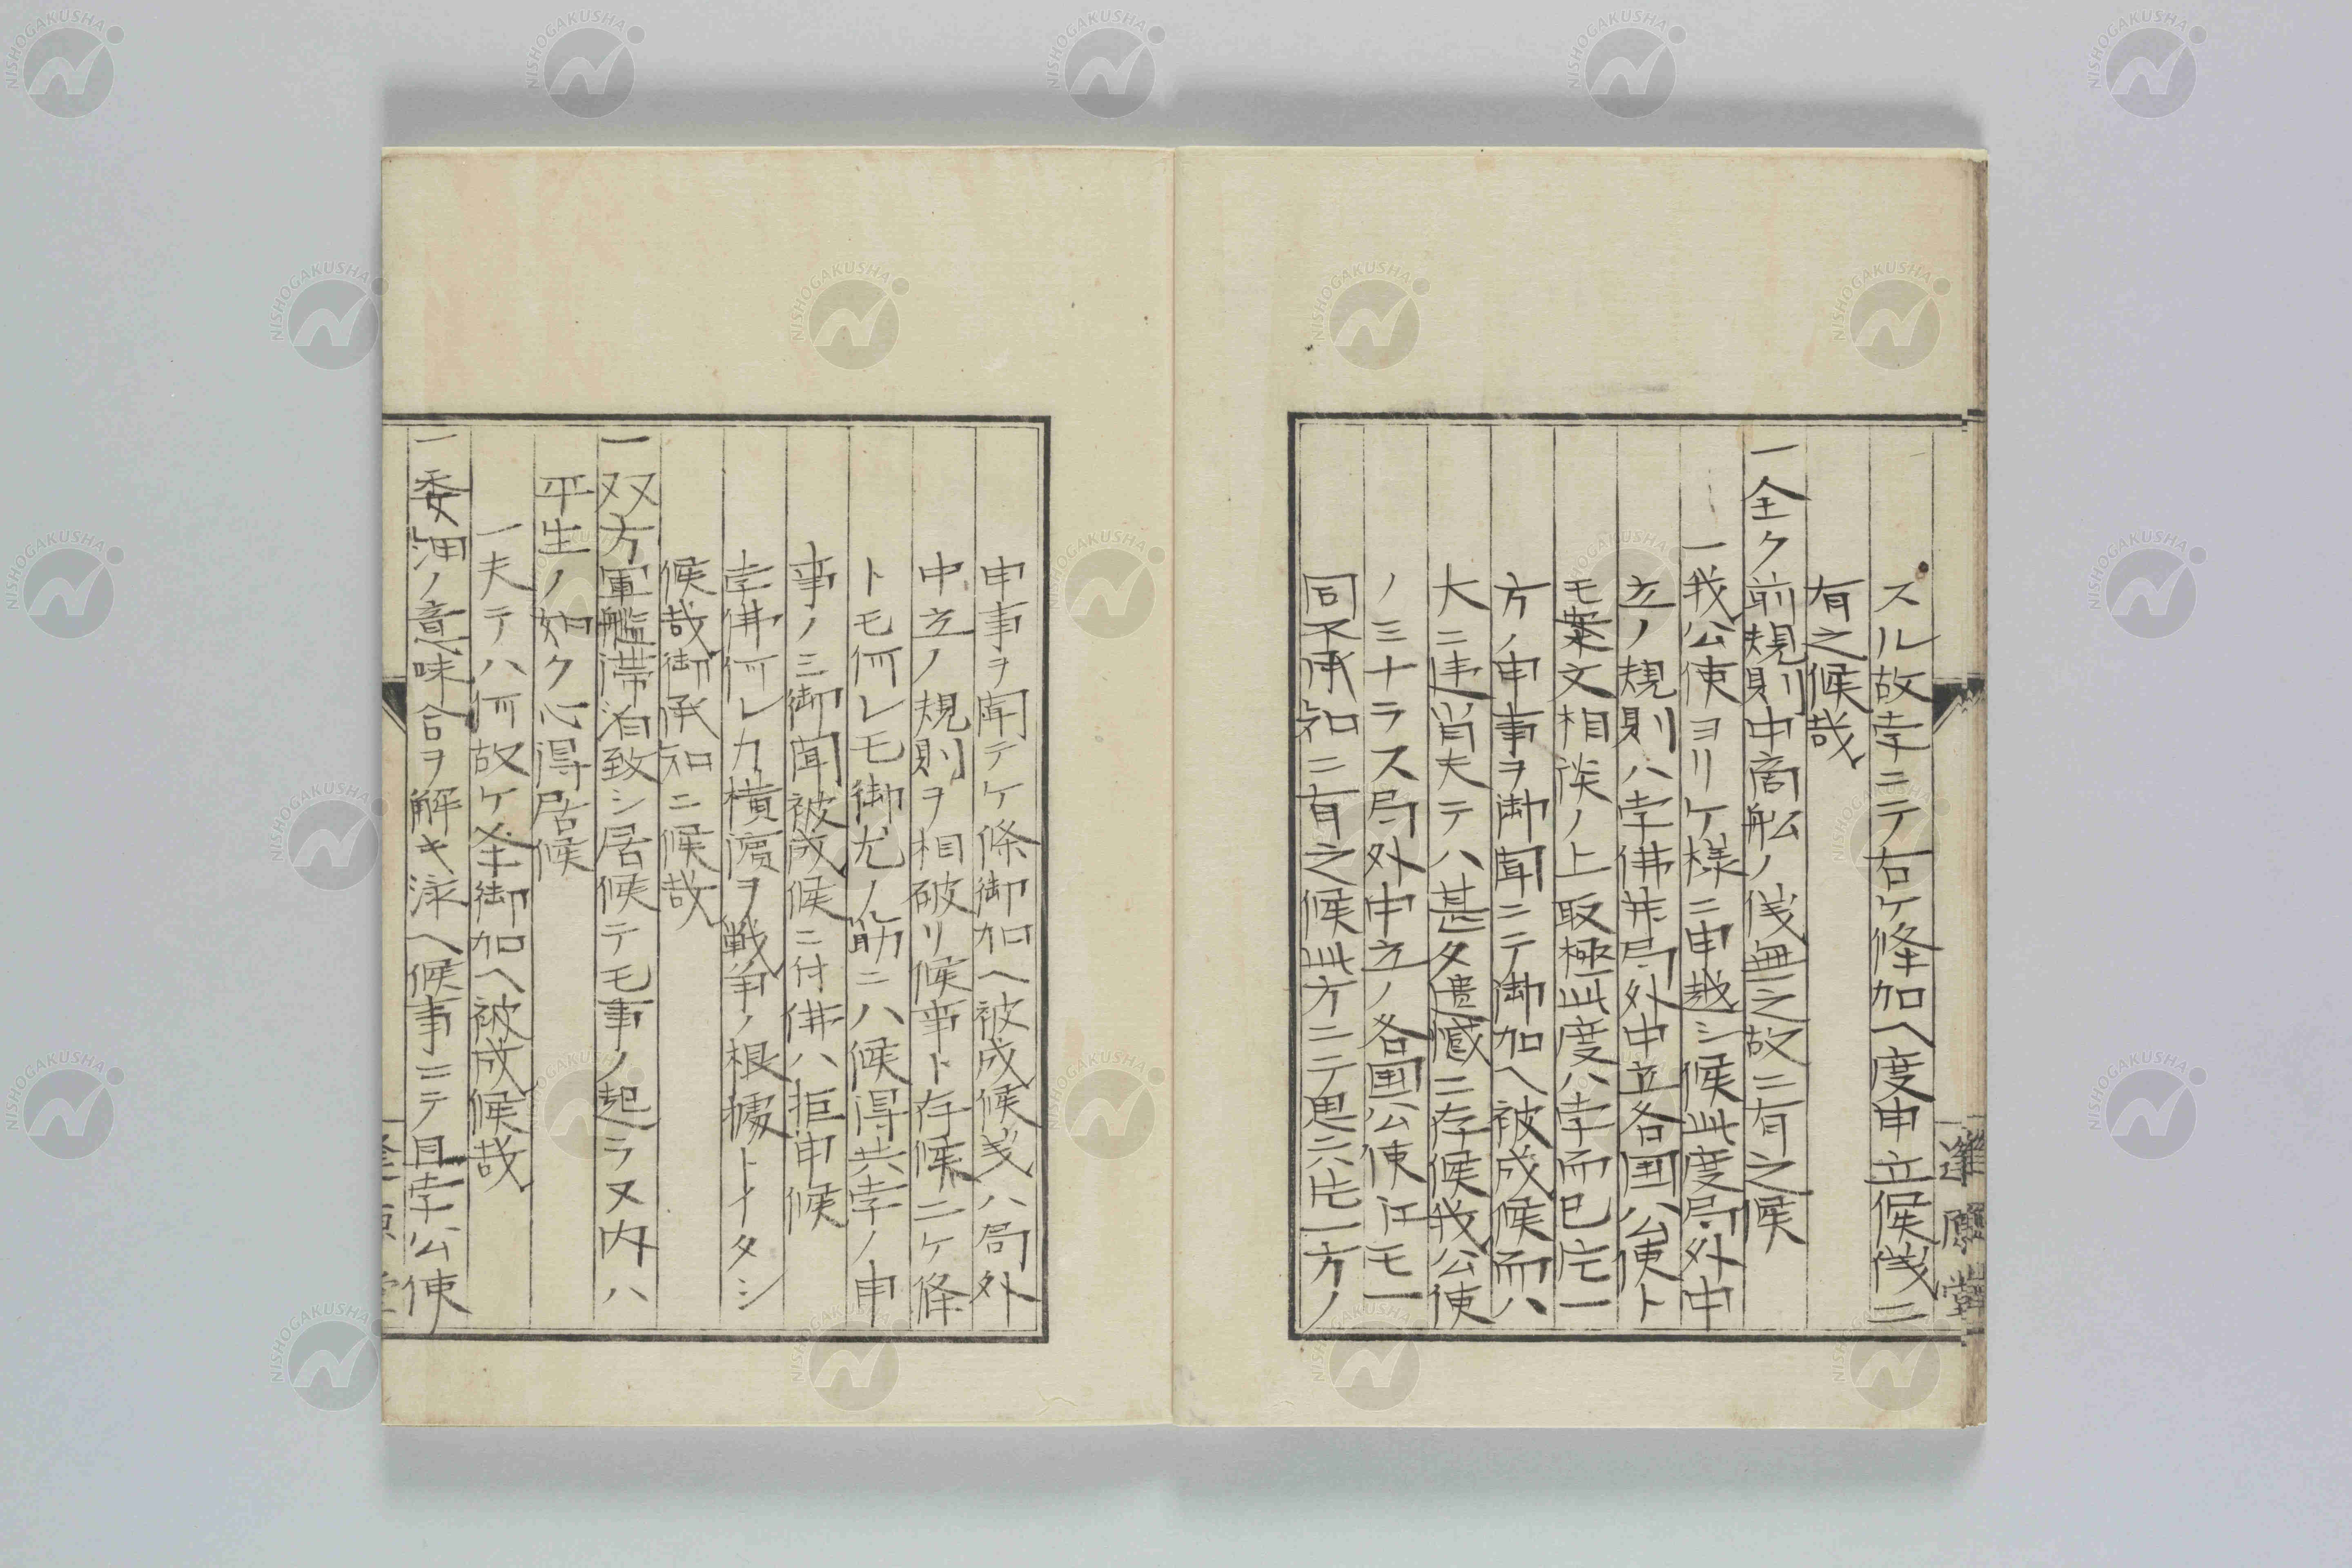 スル故孛ニテ右ケ條加ヘ度申立候儀ニ
有之候哉
一全ク前規則中商舩ノ儀無之故ニ有之候
一我公使ヨリケ樣ニ申越シ候此度局外中
立ノ規則ハ孛佛并局外中立各国公使ト
モ案文相談ノ上取極此度ハ孛而已片一
方ノ申事ヲ御聞ニテ御加ヘ被成候而ハ
大ニ違背夫テハ甚タ遺憾ニ存候我公使
ノ三十ラス局外中立ノ各国公使江モ一
同不承知ニ有之候此方ニテ思ニ片一方ノ
申事ヲ聞テケ條御加ヘ被成候義ハ局外
中立ノ規則ヲ相破リ候事ト存候二ケ條
トモ何レモ御尤ノ筋ニハ候得共孛ノ申
事ノミ御聞被成候ニ付佛ハ拒申候
孛佛何レカ横濱ヲ戦争ノ根據トイタシ
候哉御承知ニ候哉
一双方軍艦滞泊致シ居候テモ事ノ起ラヌ内ハ
平生ノ如ク心得居候
一夫テハ何故ケ条御加ヘ被成候哉
一委細ノ意味合ヲ解キ添ヘ候事ニテ且孛公使
逢原堂
NISHOGAKUSHA